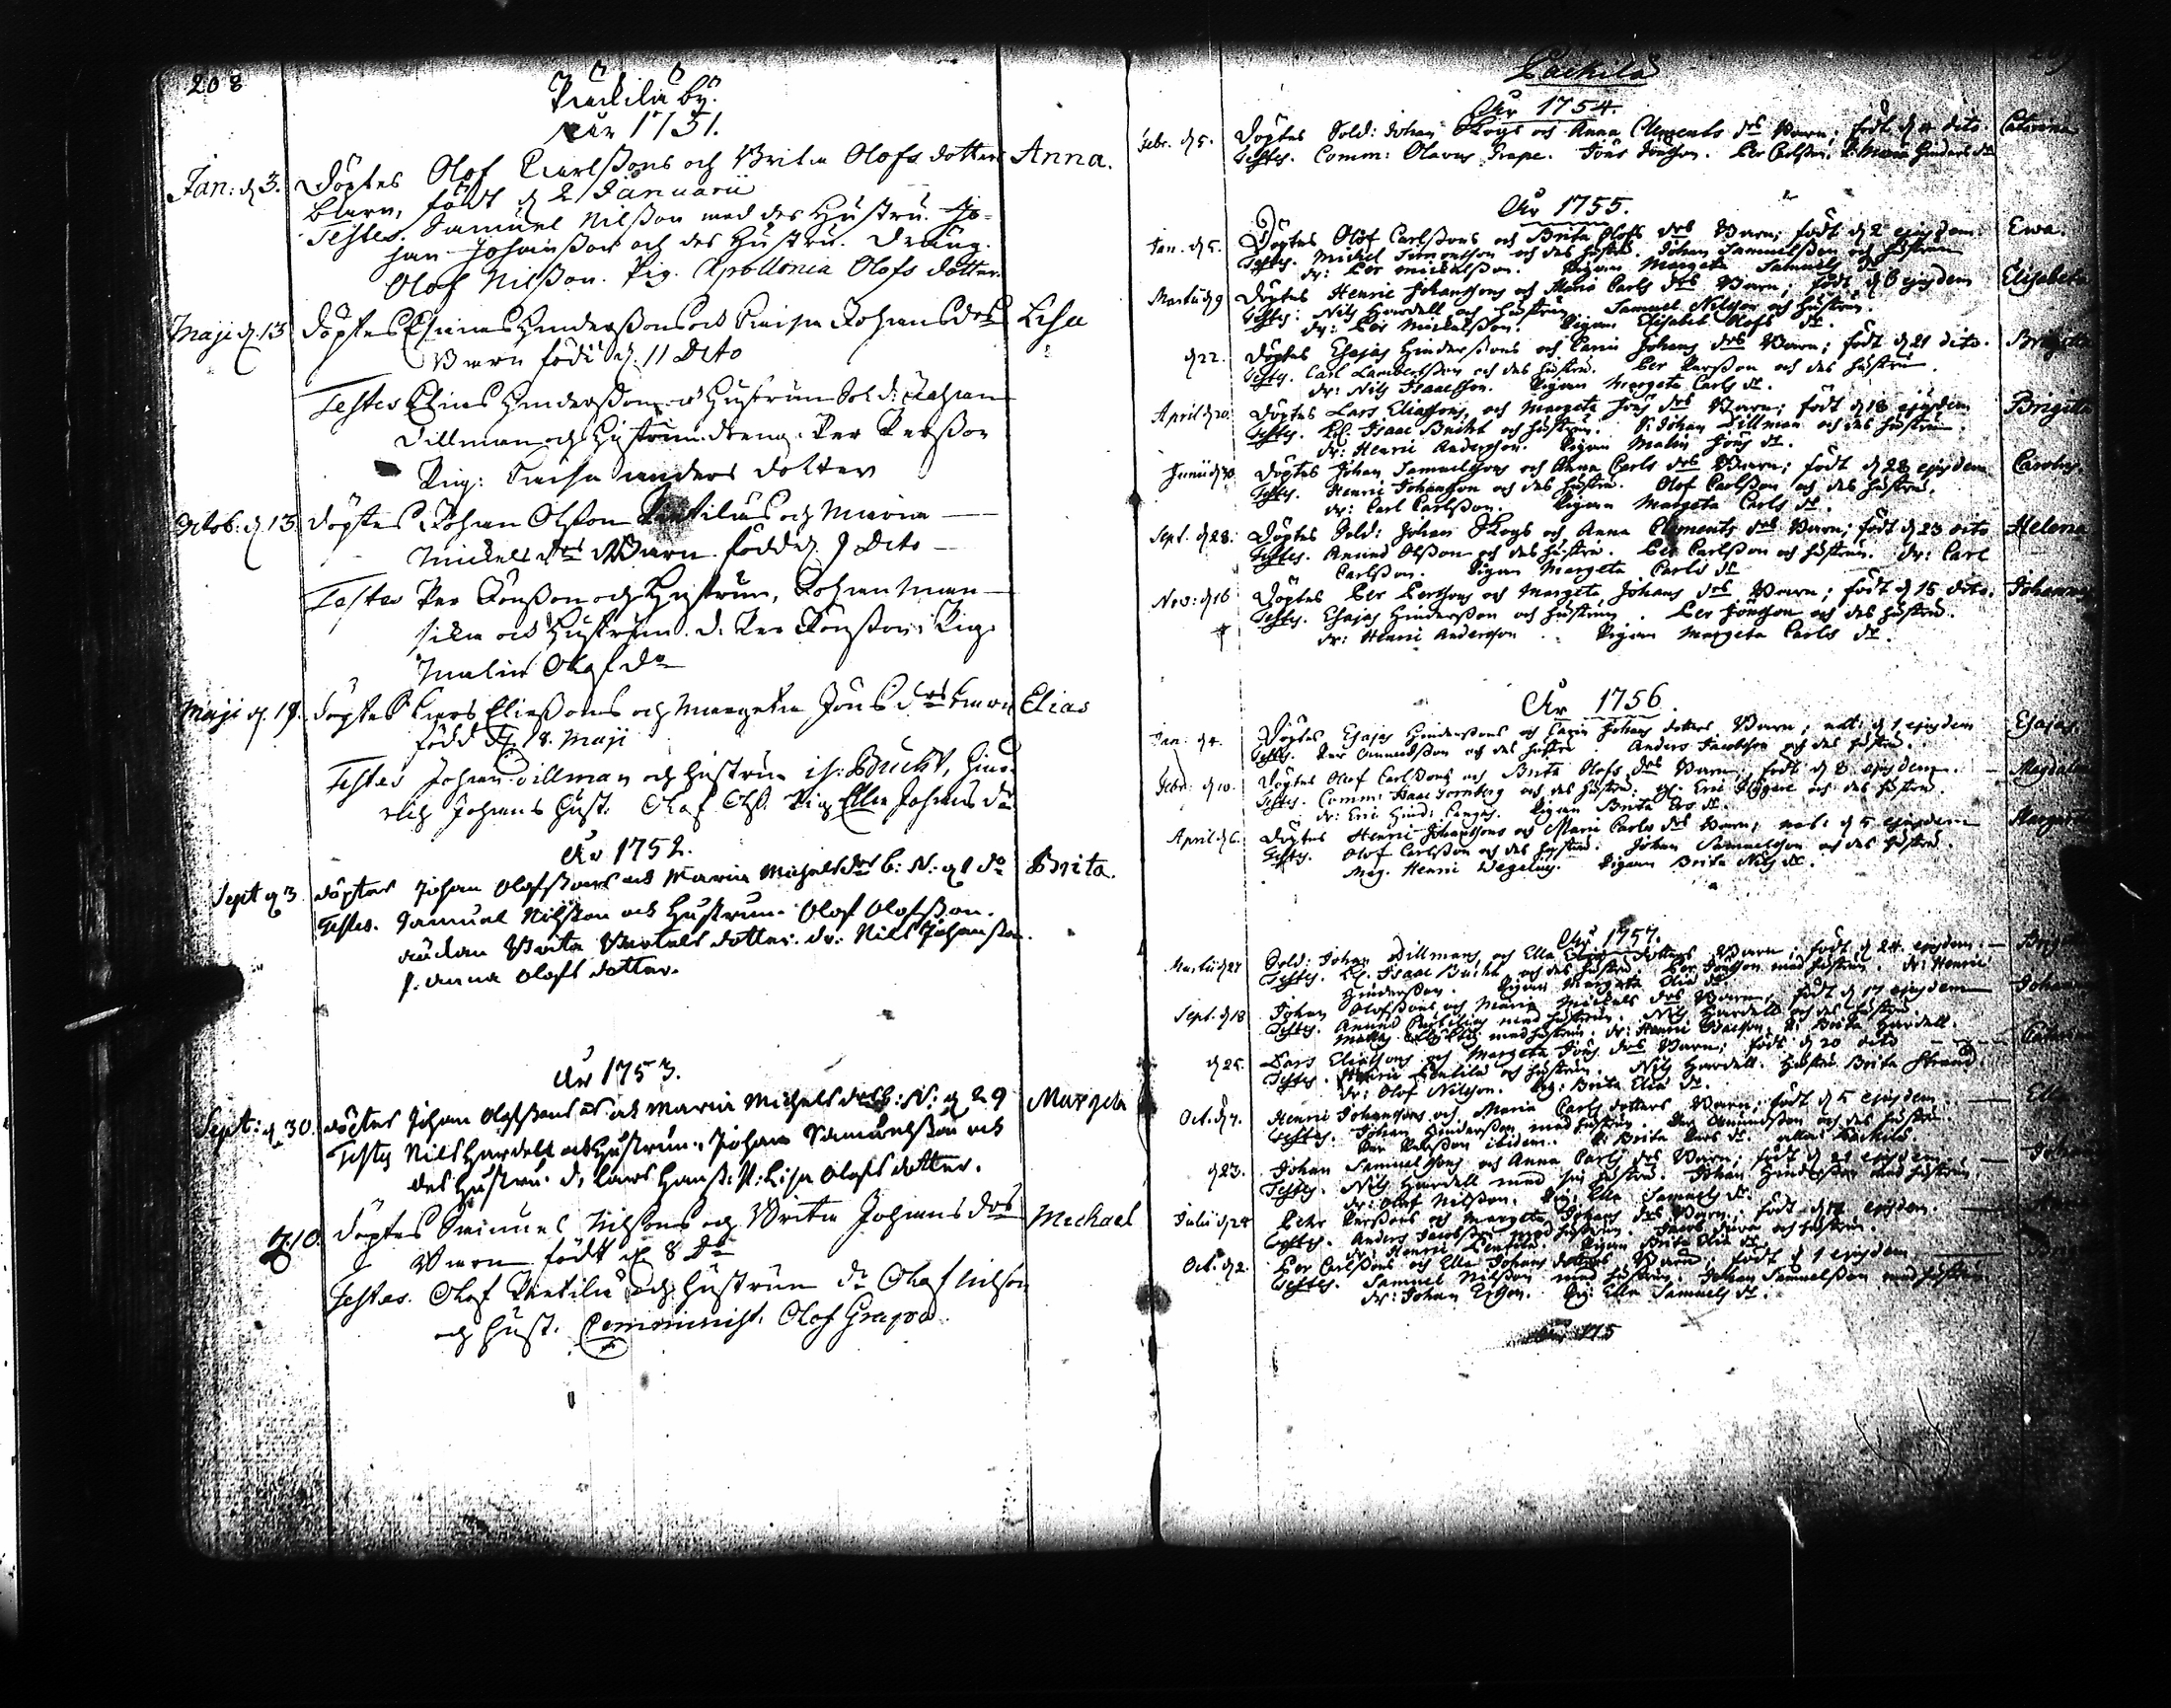 208
by.
År 1751.
Jan: d 3. Döptes Olof Carlßons och Brita Olofs dotters Anna.
barn, födt d 2 Januarii
Testes. Samuel Nilßon med des Hustru. Jo-
han Johanßon och des Hustru. Dräng.
Olof Nilßon. Pig. Apollonia Olofs dotter.
Maji d. 13 döptes Elias Hinderßons och Caisa Johans drs Lisa
Barn födt d. 11 Dito
Testes Elias Hinderßon o Hustrun Sold: Johan
Dillman och Hustrun dreng. Per Perßon
Pig: Caisa anders dotter
Octob: d. 13 döptes Johan Olßon och Maria
Mickels drs Barn född d. 9 Dito
Testes Per Jonßon och Hustrun, Johan
och Hustrun. d. Per Jonßon. Pig.
Malin Olofs dr
Maji d. 19. döptes Lars Eliaßons och Margeta Jöns drs barn Elias
född d. 18. Maji
Testes Johan Dillman och hustru is: Bucht, Hin-
rich Johans Hust: Olof Olß. Pig Ella Johans dr.
År 1752.
Sept d 3 döptes Johan Olofßons och Maria Michels dr b: N: d 1 do Brita.
Testes. Samuel Nilßon och Hustrun. Olof Olofßon.
Brita Bertels dotter. dr: Nils Johanßon.
p. anna Olofs dotter.
År 1753.
Sept: d. 30. döptes Johan Olofßons och Maria Michels drs b: N: d 29 Margeta
Testes Nils Hardell och Hustrun. Johan Samuelßon och
des Hustru. d. Lars Hanß: P: Lisa Olofs dotter.
d. 10. döptes Samuel Nilßons och Brita Johans drs Michael
Barn födt d. 8 do
Testes. Olof och Hustrun dr Olof Nilßon
och Hust. Comminist. Olof Grape.
År 1754.
Febr. d 5. Döptes Sold: Johan Skogs och Anna Clements drs Barn; födt d 4 dito. Catarina
Testes. Comm: Olavus Grape. Jöns Jönßon. Per Carlßon. P: Maria Hinders dr
År 1755.
Jan. d 5. Döptes Olof Carlßons och Brita Olofs drs Barn; födt d 2 ejusdem. Ewa.
Testes. Michel och des hustru. Johan Samuelßon och hustrun
dr: Per Mickelßon. Pigan Margeta Samuels dr
Martii d 9 Döptes Henric Johanßons och Maria Carls drs Barn; födt d 6 ejusdem Elisabeta
Testes: Nils Hardell och hustrun. Samuel Nilsson och hustrun.
dr: Per Mickelßon. Pigan Elisabet Olofs dr.
d 22. Döptes Esajas Hinderßons och Carin Johans drs Barn; födt d 21 dito. Brigitta
Testes. Carl Lambertßon och des hustru. Per Perßon och des hustru.
dr: Nils Isaacsson. Pigan Margeta Carls dr.
April d 20. Döptes Lars Eliaßons, och Margeta Jöns drs Barn; födt d 18 ejusdem Brigitta
Testes. Isaac Bucht och hustrun. S: Johan Dillman och des hustru.
dr: Henric Andersson. Pigan Malin Jöns dr.
Junii d 30. Döptes Johan Samuelßons och Anna Carls drs Barn; födt d 28 ejusdem Carolus.
Testes. Henric Johanßon och des hustru. Olof Carlßon och des hustru.
dr: Carl Carlßon. Pigan Margeta Carls dr.
Sept. d 28. Döptes Sold: Johan Skogs och Anna Clements drs Barn; födt d 23 dito Helena
Testes. Amund Olßon och des hustru. Per Carlßon och hustrun. dr: Carl
Carlßon. Pigan Margeta Carls dr
Nov: d 16 Döptes Per Perßons och Margeta Johans drs Barn; födt d 15 dito. Johannes
Testes. Esajas Hinderßon och hustrun. Per Jönßon och des hustru.
dr: Henric Andersson Pigan Margeta Carls dr.
År 1756.
Jan: d 4. Döptes Esajas Hinderßons och Carin Johans dotters Barn; nat: d 1 ejusdem Esajas.
Testes. Per Amundßon och des hustru. Anders Jacobsson och des hustru.
Febr: d 10. Döptes Olof Carlßons och Brita Olofs drs Barn, födt d 8 ejusdem. Magdalena
Testes. Comm: Isaac och des hustru. Eric och des hustru.
dr: Eric Hind: Pigan Brita dr.
April d 6. Döptes Henric Johanßons och Maria Carls drs Barn; nat: d 5 ejusdem Margareta
Testes. Olof Carlßon och des hustru. Johan Samuelsson och des hustru.
Mag. Henric Wegelius. Pigan Brita Nils dr.
År 1757.
Martii d 27 Sold: Johan Dillmans och Ella dotters Barn; födt d 24 ejusdem.
Testes. Isaac Bucht och des hustru. Per Jönßon med hustrun. dr: Henric
Hinderßon. Pigan Margeta dr.
Sept. d 18 Johan Olofßons och Maria Mickels drs Barn, födt d 17 ejusdem Johannes
Testes. Amund med hustrun. Nils Hardell och des hustru.
med hustrun. dr: Henric P: Brita Hardell.
d 25. Lars Eliaßons och Margeta Jöns drs Barn; födt d 20 dito
Testes. och hustrun. Nils Hardell. Hustru Brita Strand.
dr: Olof Nilsson. Pig: Brita Elia dr.
Oct. d 7. Henric Johanßons och Maria Carls dotters Barn, födt d 5 ejusdem. Ella
Testes. Johan Hinderßon med hustrun. Per Amundßon och des hustru
Per Perßon ibidem. P: Brita Lars dr.
d 23. Johan Samuelßons och Anna Carls drs Barn; födt d 21 ejusdem.
Testes. Nils Hardell med sin hustru. Johan Hinderßon med hustrun
dr: Olof Nilsson. Pig: Ella Samuels dr.
Julii d 24 Pehr Perßons och Margeta Johans drs Barn; födt d 17 ejusdem.
Testes. Anders Jacobßon med hustrun. Jacob och hustrun.
dr: Henric Pigan Brita Olia dr.
Oct. d 2. Per Carlßons och Ella Johans dotters Barn, födt d 1 ejusdem
Testes. Samuel Nilßon med hustrun. Johan Samuelßon med hustrun
dr: Johan Pig: Ella Samuels dr.
År 175